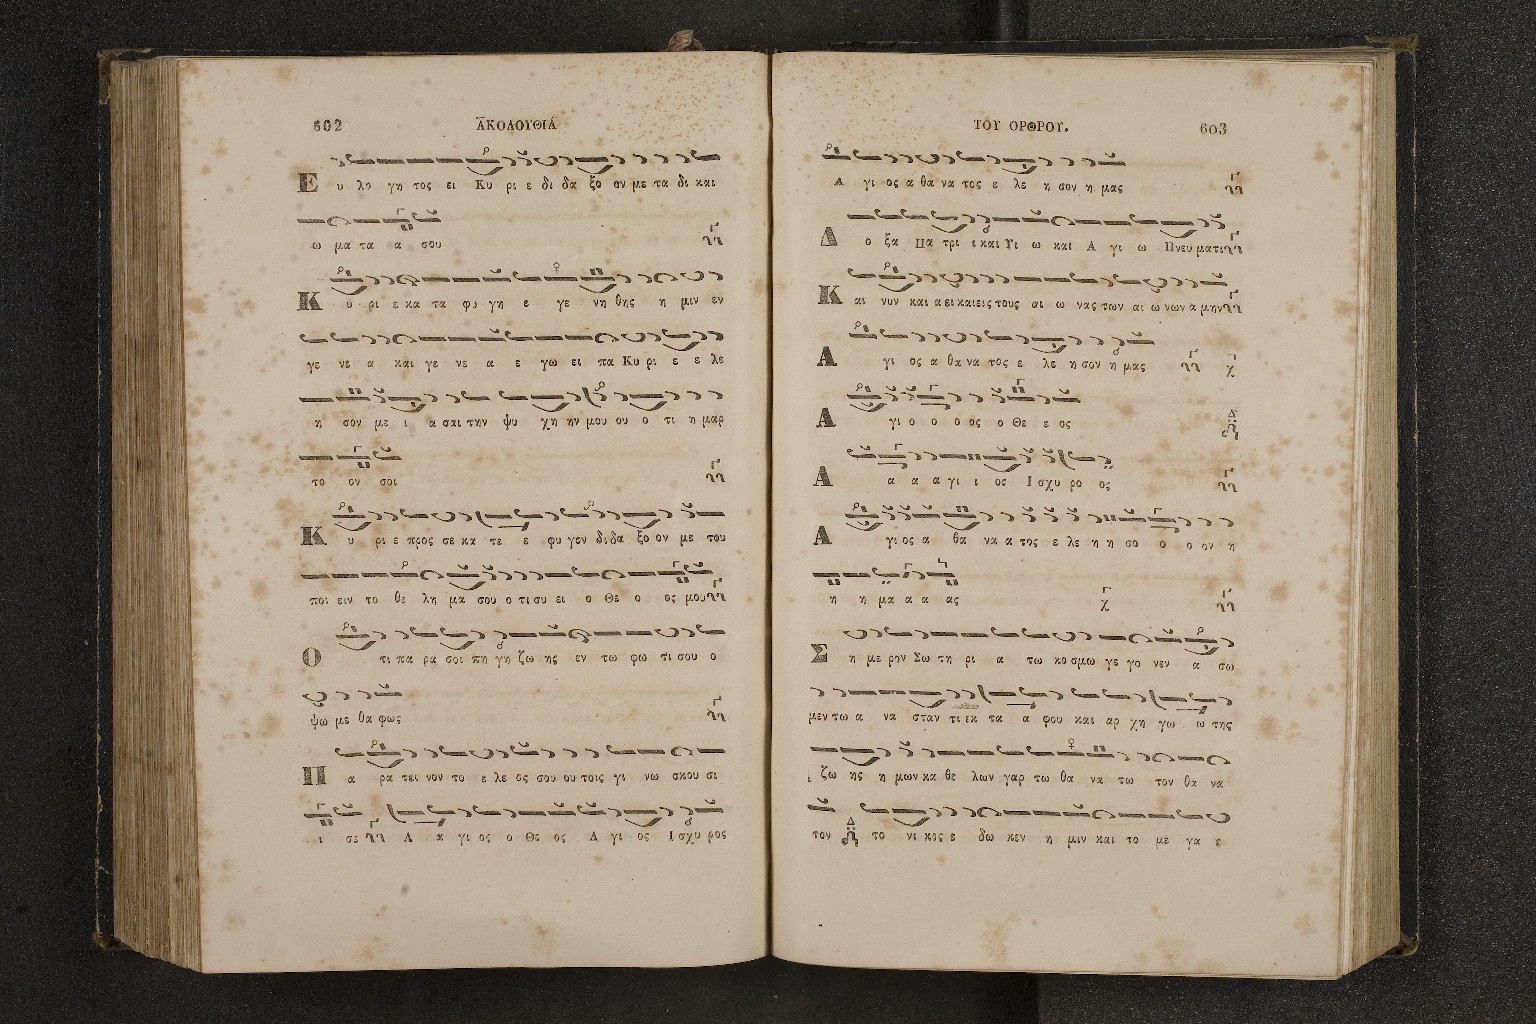 602 ΑΚΟΛΟΥΘΙΑ
Ε υ λο γη τος ει Κυ ρι ε δι δα ξο ον με τα δι και
ω μα τα α σου
Κ υ ρι ε κα τα φυ γη ε γε νη θης η μιν εν
γε νε α και γε νε α ε γω ει πα Κυ ρι ε ε λε
η σον με ι α σαι την ψυ χη ην μου ου ο τι η μαρ
το ον σοι
Κ υ ρι ε προς σε κα τε ε φυ γον δι δα ξο ον με του
ποι ειν το θε λη μα σου ο τι συ ει ο Θε ο ος μου
Ο τι πα ρα σοι πη γη ζω ης εν τω φω τι σου ο
ψω με θα φως
Π α ρα τει νον το ε λε ος σου ου τοις γι νω σκου σι
ι σε Α α γι ος ο Θε ος Α γι ος Ι σχυ ρος
ΤΟΥ ΟΡΘΡΟΥ. 603
Α γι ος α θα να τος ε λε η σον η μας
Δ ο ξα Πα τρι ι και Υι ω και Α γι ω Πνευ ματι
Κ αι νυν και α ει και εις τους αι ω νας των αι ω νων α μην
Α γι ος α θα να τος ε λε η σον η μας χ
Α γι ο ο ο ος ο Θε ε ος
Α α α α γι ι ος Ι σχυ ρο ος
Α γι ος α θα να α τος ε λε η η σο ο ο ον η
η η μα α α ας χ
Σ η με ρον Σω τη ρι α τω κο σμω γε γο νεν α σω
μεν τω α να σταν τι εκ τα α φου και αρ χη γω ω της
ζω ης η μων κα θε λων γαρ τω θα να τω τον θα να
τον το νι κος ε δω κεν η μιν και το με γα ε